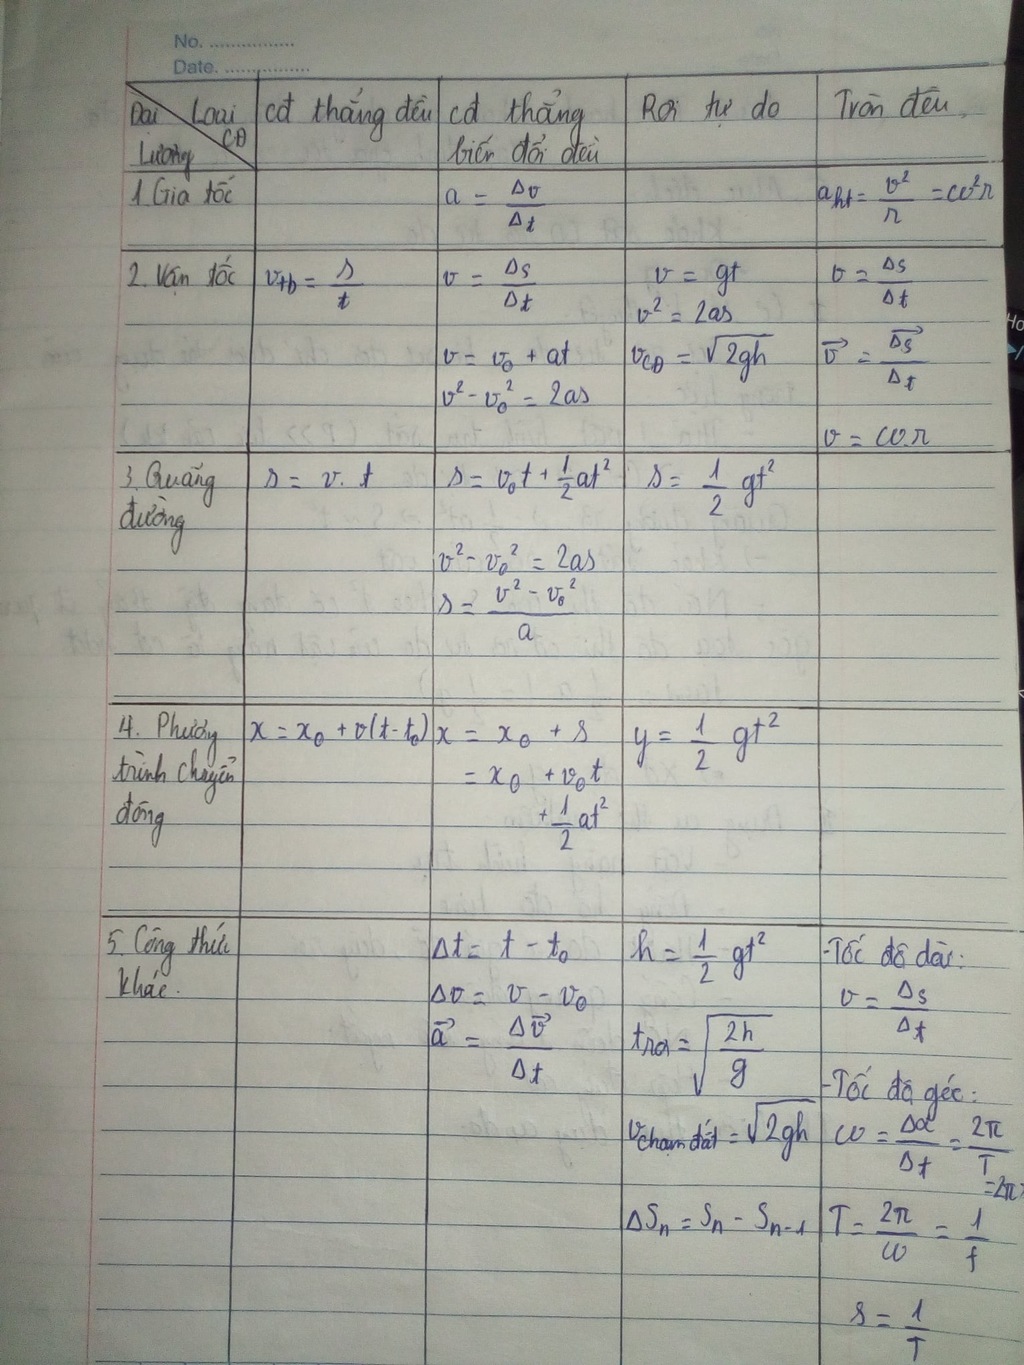 No. ................
Date. ................
Đại Loại CĐ Lượng
cđ thẳng đều
cđ thẳng biến đổi đều
Rơi tự do
Tròn đều
1. Gia tốc
a = Δv/Δt
a_ht = v²/r = ω²r
2. Vận tốc
v_tb = s/t
v = Δs/Δt
v = v₀ + at
v² - v₀² = 2as
v = gt
v² = 2as
v_CĐ = √2gh
v = Δs/Δt
v⃗ = Δs⃗/Δt
v = ω.r
3. Quãng đường
s = v. t
s = v₀t + 1/2 at²
v² - v₀² = 2as
s = (v² - v₀²)/a
s = 1/2 gt²
4. Phương trình chuyển động
x = x₀ + v(t - t₀)
x = x₀ + s
= x₀ + v₀t
+ 1/2 at²
y = 1/2 gt²
5. Công thức khác.
Δt = t - t₀
Δv = v - v₀
a⃗ = Δv⃗/Δt
h = 1/2 gt²
t_rơi = √(2h/g)
v_chạm đất = √2gh
ΔSₙ = Sₙ - Sₙ₋₁
-Tốc độ dài:
v = Δs/Δt
-Tốc độ góc:
ω = Δα/Δt = 2π/T
= 2π
T = 2π/ω = 1/f
s = 1/T
Ho